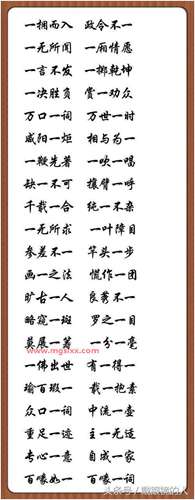 一拥而入 政令不一
一无所闻 一厢情愿
一言不发 一掷乾坤
一决胜负 赏一劝众
万口一词 万世一时
咸阳一炬 相与为一
一鞭先著 一吹一唱
缺一不可 攘臂一呼
千载一合 纯一不杂
一无所求 一叶障目
参差不一 竿头一步
画一之法 慌作一团
旷古一人 良莠不一
暗窥一斑 罗之一目
莫展一筹 一分一毫
一佛出世 有一得一
瑜百瑕一 载一抱素
众口一词 中流一壶
重足一迹 主一无适
专心一意 自成一家
百喙如一 百喙一词
www.mgslxx.com
头条号